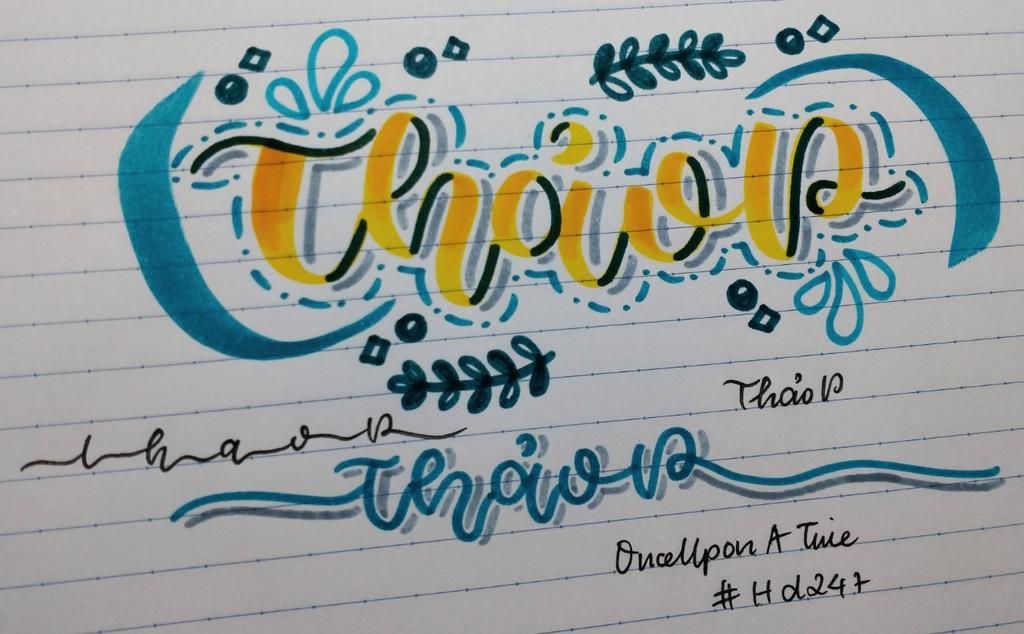 Thảo P
Thảo P
thaop
Thảo P
OnceUpon A Time
#Hd247